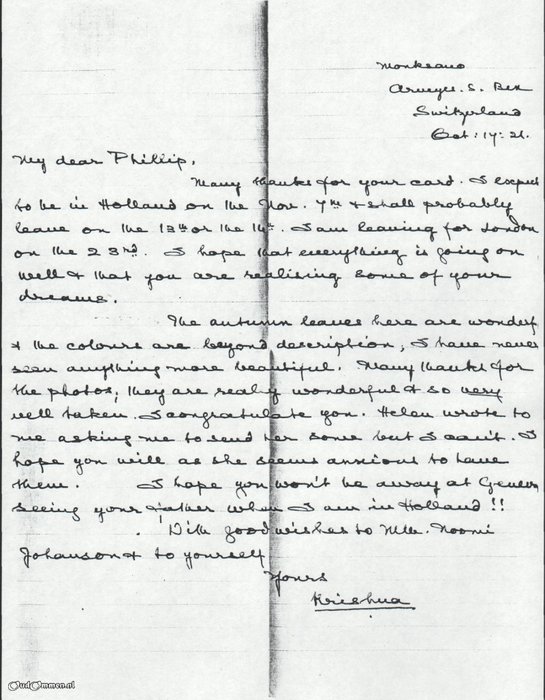 Monkeano
Arveyes. s. Bex
Switzerland
Oct: 17: 21.
My dear Phillip,
Many thanks for your card. I expect
to be in Holland on the Nov. 7th & shall probably
leave on the 13th or the 14th. I am leaving for London
on the 23rd. I hope that everything is going on
well & that you are realising some of your
dreams.
The autumn leaves here are wonderf
& the colours are beyond description, I have never
seen anything more beautiful. Many thanks for
the photos, they are really wonderful & so very
well taken. I congratulate you. Helen wrote to
me asking me to send her some but I can't. I
hope you will as she seems anxious to have
them. I hope you won't be away at Geneva
seeing your father when I am in Holland!!
With good wishes to Mlle. Noomi
Johanson & to yourself
Yours
Krishna
OudOmmen.nl